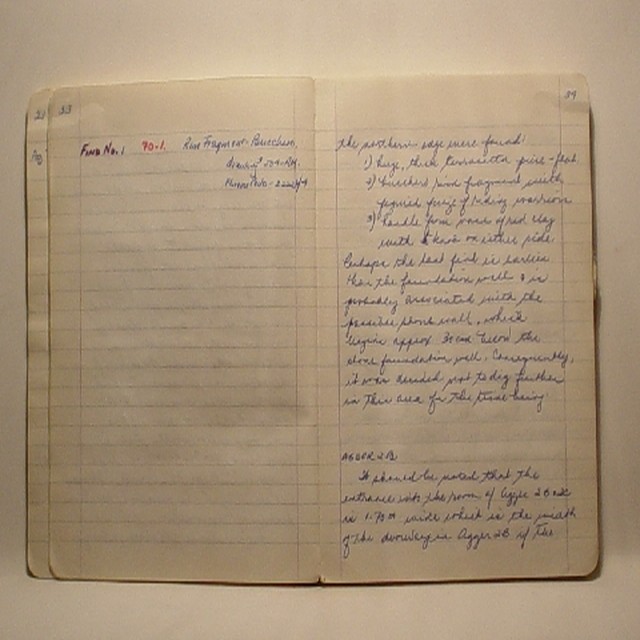 33
Find No. 1 70-1. Rim Fragment - Bucchero,
39
the northern edge were found:
1) huge, thick terracotta piece - flat
2) bucchero rim fragment with
figured frieze of riding warrior
3) handle from vase of red clay
with on either side
Perhaps the last find is earlier
than the foundation wall & is
probably associated with the
possible stone wall, which
begins approx 30 cm below the
stone foundation wall. Consequently,
it was decided not to dig further
in this area for the time being.
AGGER 2B
It should be noted that the
entrance into the room of Agger 2B
is 1.70 m wide which is the width
of the doorway in Agger 2B of the